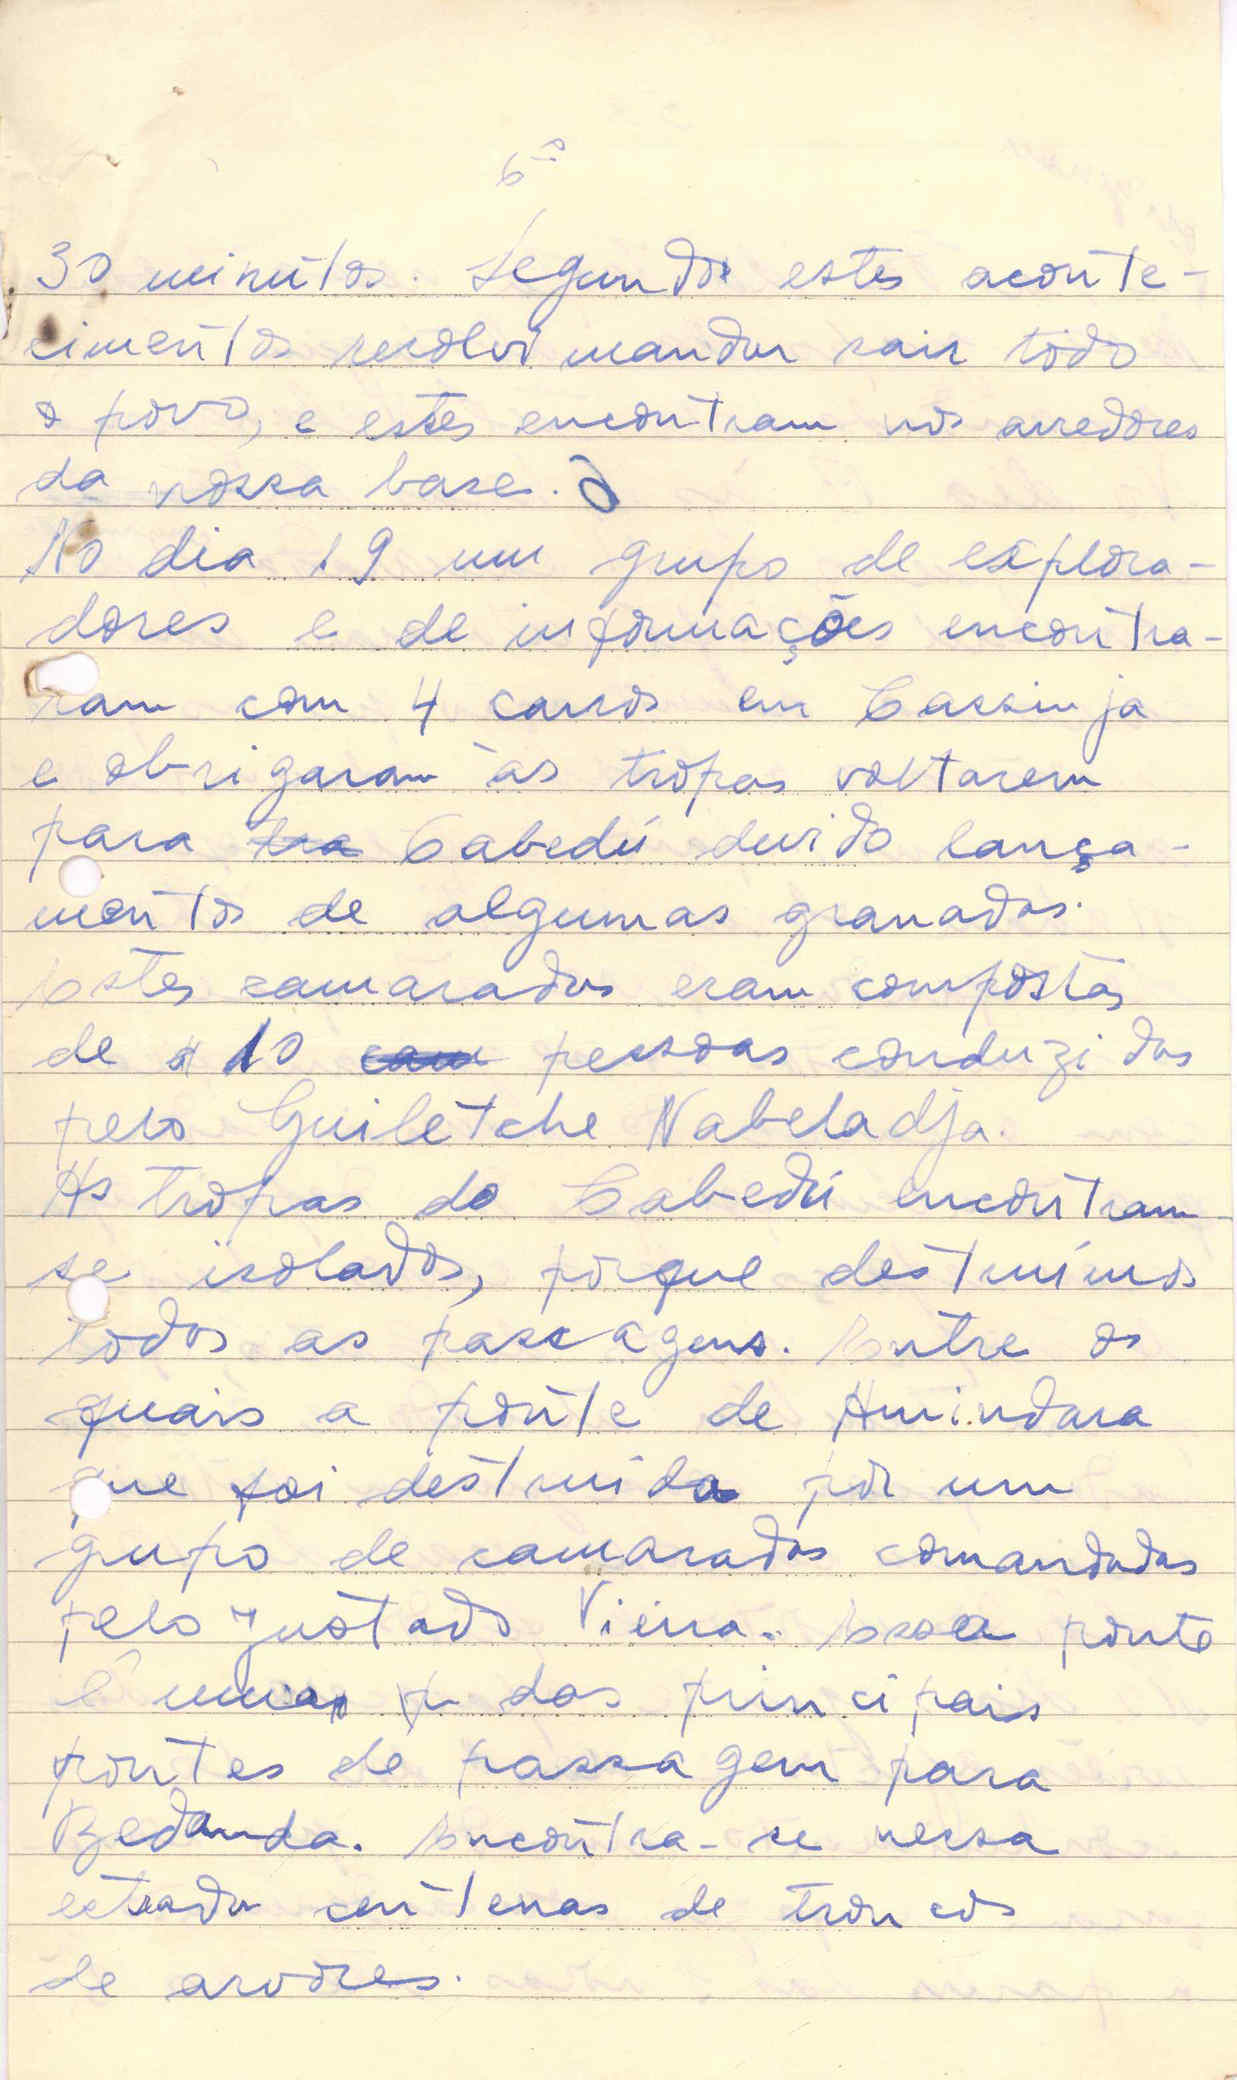 6º
30 minutos. Segundo estes aconte-
cimentos resolvi mandar sair todo
o povo, e estes encontram nos arredores
da nossa base.
No dia 19 um grupo de explora-
dores e de informações encontra-
ram com 4 carros em Cassinja
e obrigaram às tropas voltarem
para tra Cabedú duvido lança-
mentos de algumas granadas.
Estes camaradas eram compostas
de 10 com pessoas conduzidas
pelo Guiletche Nabeladja.
As tropas do Cabedú encontram-
se isolados, porque destruímos
todos as passagens. Entre os
quais a ponte de Amindara
que foi destruida por um
grupo de camaradas comandadas
pelo Justado Vieira. Essa ponte
é uma p dos principais
pontes de passagem para
Bedanda. Encontra-se nessa
estrada centenas de troncos
de arvores.